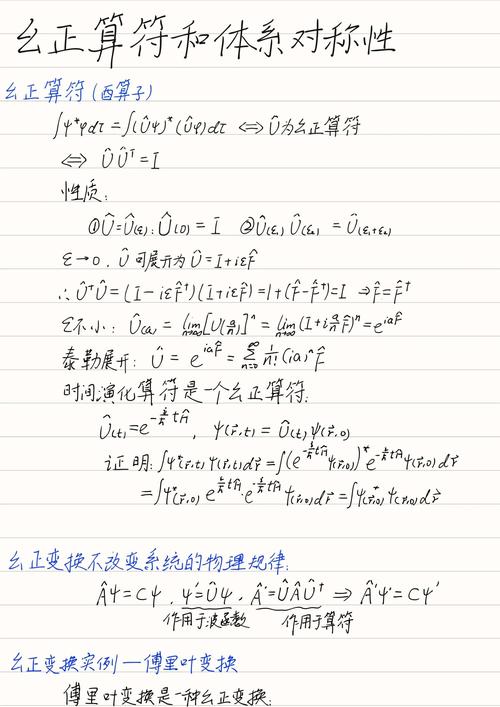 幺正算符和体系对称性
幺正算符(酉算子)
∫ψ*φdτ = ∫(Ûψ)*(Ûφ)dτ ⟺ Û为幺正算符
⟺ ÛÛ† = I
性质:
①Û=Û(ε): Û(0) = I ②Û(ε₁)Û(ε₂) = Û(ε₁+ε₂)
ε→0, Û可展开为Û=I+iεF̂
∴Û†Û=(I-iεF̂†)(I+iεF̂)=I+(F̂-F̂†)=I ⇒F̂=F̂†
ε不小: Û(a) = lim n→∞ [U(a/n)]ⁿ = lim n→∞ (I+i a/n F̂)ⁿ=e^{iaF̂}
泰勒展开: Û = e^{iaF̂} = Σ n=0 ∞ 1/n! (ia)ⁿF̂
时间演化算符是一个幺正算符:
Û(t)=e^{-i/ħ tĤ}, ψ(r⃗,t) = Û(t)ψ(r⃗,0)
证明: ∫ψ*(r⃗,t)ψ(r⃗,t)dr⃗=∫(e^{-i/ħ tĤ}ψ(r⃗,0))*e^{-i/ħ tĤ}ψ(r⃗,0)dr⃗
=∫ψ*(r⃗,0)e^{i/ħ tĤ}·e^{-i/ħ tĤ}ψ(r⃗,0)dr⃗=∫ψ*(r⃗,0)ψ(r⃗,0)dr⃗
幺正变换不改变系统的物理规律:
Âψ=Cψ, ψ'=Ûψ, Â'=ÛÂÛ† ⇒ Â'ψ'=Cψ'
作用于波函数 作用于算符
幺正变换实例—傅里叶变换
傅里叶变换是一种幺正变换: